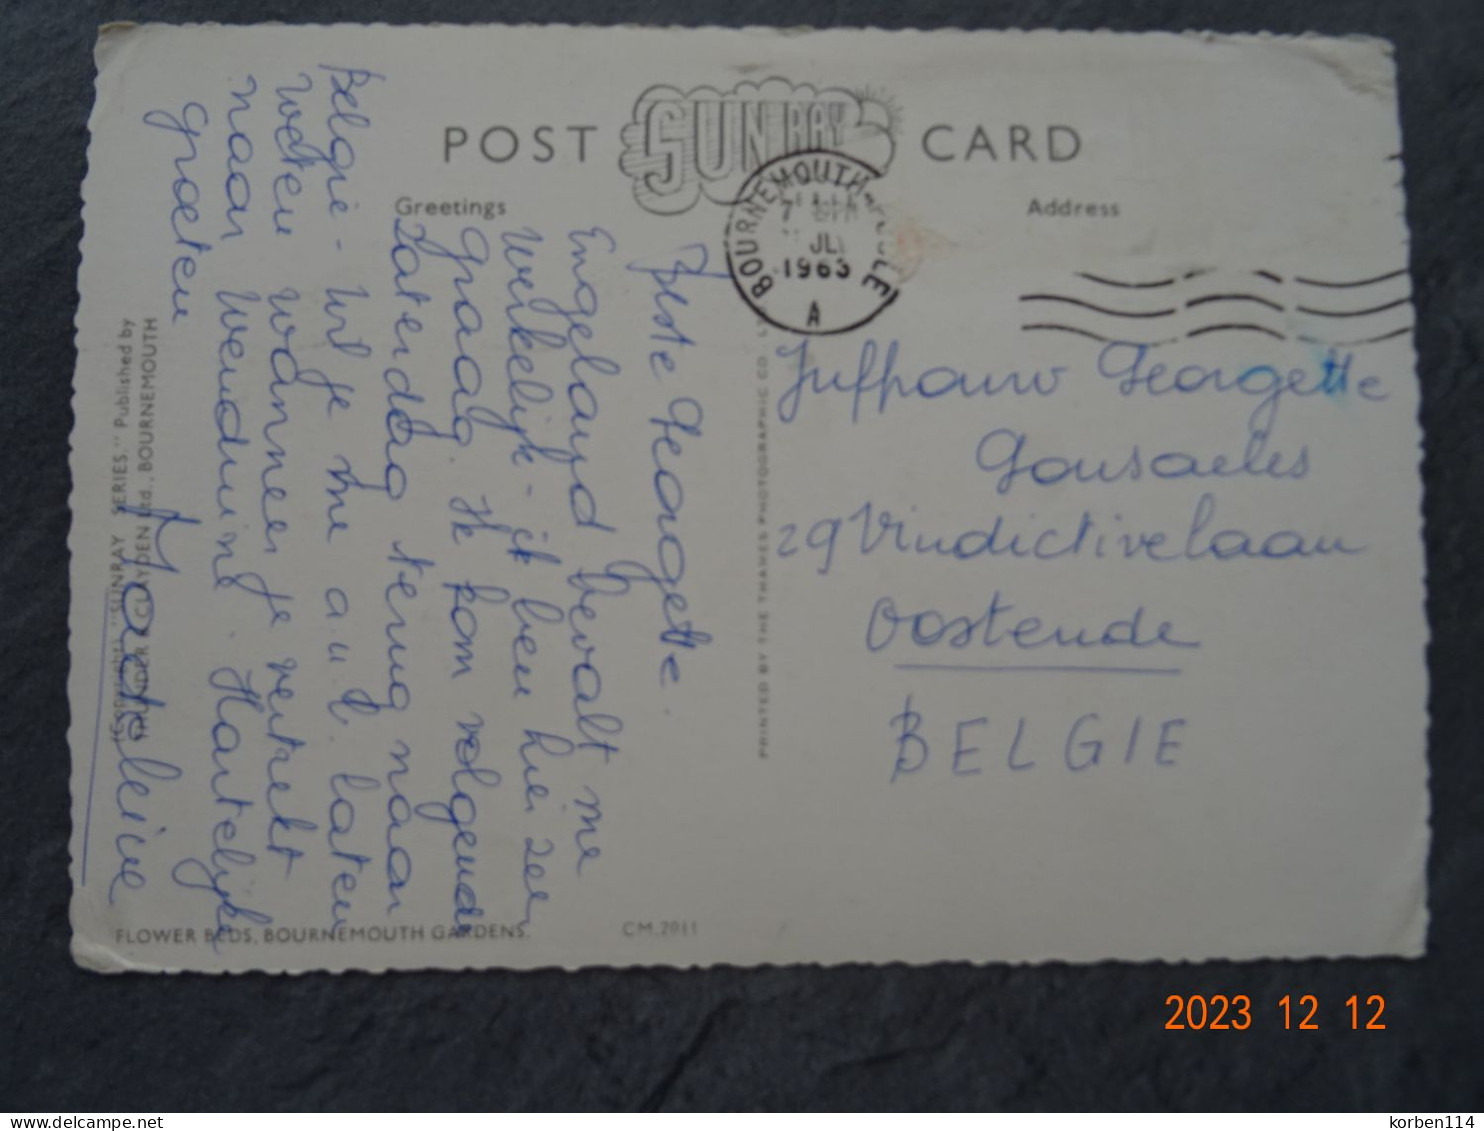 POST SUNRAY CARD
Greetings
Address
BOURNEMOUTH-POOLE
JLY
1963
A
Beste Georgette.
Engeland bevalt me
werkelijk - ik ben hier zeer
graag. Ik kom volgende
Zaterdag terug naar
België - wil je me a.u.b. laten
weten wanneer je vertrekt
naar Wenduine. Hartelijke
groeten
Juffrouw Georgette
29 Vindictivelaan
Oostende
BELGIE
PRINTED BY THE THAMES PHOTOGRAPHIC CO. LT
(Copyright) "SUNRAY SERIES." Published by
THUNDER & CLAYDEN Ltd., BOURNEMOUTH
FLOWER BEDS, BOURNEMOUTH GARDENS.
CM.2011
2023 12 12
delcampe.net
korben114